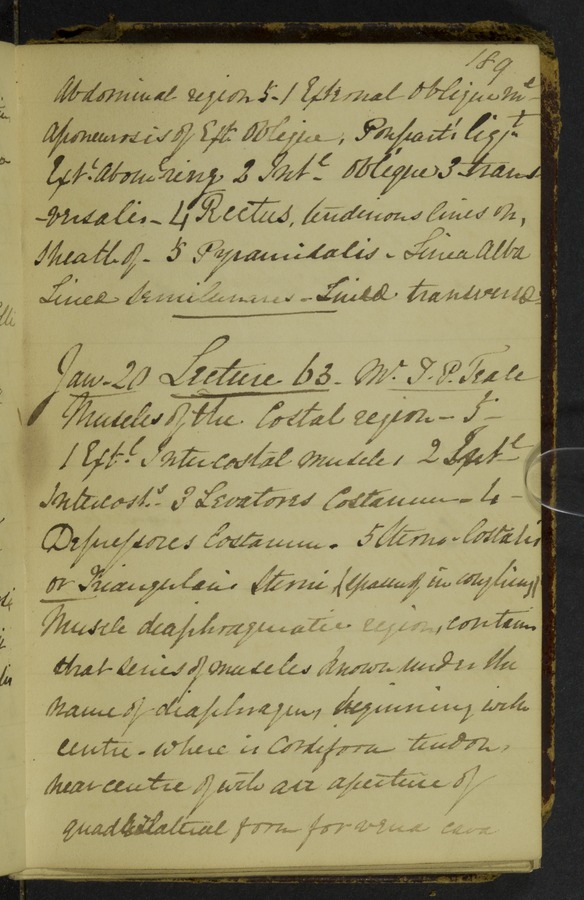 189
Abdominal region 5 - 1 External oblique mle
Aponeurosis of Ext. oblique, Poupart's ligt
Extl Abdom ring 2 Intl oblique 3 trans
-versalis - 4 Rectus, tendinous lines on,
sheath of - 5 Pyramidalis - Linea Alba
Linea Semilunares - Linea transversa
Jan - 20 Lecture 63 - Mr. T. P. Teale
Muscles of the Costal region - 5 -
1 Extl Intercostal muscles 2 Intl
Intercostl - 3 Levatores Costarum - 4 -
Depressores Costarum - 5 Sterno-Costalis
or Triangularis Sterni (spasm of in coughing)
Muscle diaphragmatic region, contains
that series of muscles known under the
name of diaphragm, beginning with
centre - where is Cordiform tendon,
near centre of wh are aperture of
quadrilateral form for vena cava